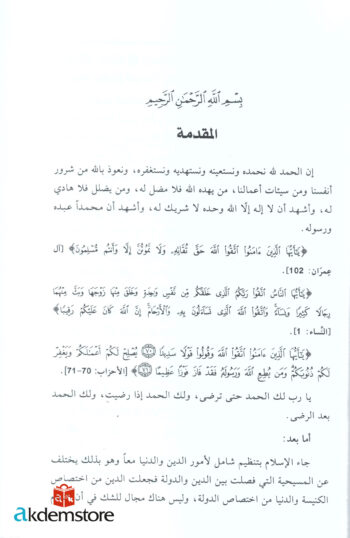 بِسْمِ اللَّهِ الرَّحْمَٰنِ الرَّحِيمِ
المقدمة
إن الحمد لله نحمده ونستعينه ونستهديه ونستغفره، ونعوذ بالله من شرور
أنفسنا ومن سيئات أعمالنا، من يهده الله فلا مضل له، ومن يضلل فلا هادي
له، وأشهد أن لا إله إلّا الله وحده لا شريك له، وأشهد أن محمداً عبده
ورسوله.
﴿يَٰٓأَيُّهَا ٱلَّذِينَ ءَامَنُوا۟ ٱتَّقُوا۟ ٱللَّهَ حَقَّ تُقَاتِهِۦ وَلَا تَمُوتُنَّ إِلَّا وَأَنتُم مُّسْلِمُونَ﴾ [آل
عِمرَان: 102].
﴿يَٰٓأَيُّهَا ٱلنَّاسُ ٱتَّقُوا۟ رَبَّكُمُ ٱلَّذِى خَلَقَكُم مِّن نَّفْسٍ وَٰحِدَةٍ وَخَلَقَ مِنْهَا زَوْجَهَا وَبَثَّ مِنْهُمَا
رِجَالًا كَثِيرًا وَنِسَآءً وَٱتَّقُوا۟ ٱللَّهَ ٱلَّذِى تَسَآءَلُونَ بِهِۦ وَٱلْأَرْحَامَ إِنَّ ٱللَّهَ كَانَ عَلَيْكُمْ رَقِيبًا﴾
[النِّساء: 1].
﴿يَٰٓأَيُّهَا ٱلَّذِينَ ءَامَنُوا۟ ٱتَّقُوا۟ ٱللَّهَ وَقُولُوا۟ قَوْلًا سَدِيدًا ﴿٧٠﴾ يُصْلِحْ لَكُمْ أَعْمَٰلَكُمْ وَيَغْفِرْ
لَكُمْ ذُنُوبَكُمْ وَمَن يُطِعِ ٱللَّهَ وَرَسُولَهُۥ فَقَدْ فَازَ فَوْزًا عَظِيمًا ﴿٧١﴾﴾ [الأحزَاب: 70-71].
يا رب لك الحمد حتى ترضى، ولك الحمد إذا رضيت، ولك الحمد
بعد الرضى.
أما بعد:
جاء الإسلام بتنظيم شامل لأمور الدين والدنيا معاً وهو بذلك يختلف
عن المسيحية التي فصلت بين الدين والدولة فجعلت الدين من اختصاص
الكنيسة والدنيا من اختصاص الدولة، وليس هناك مجال للشك في أن
akdemstore